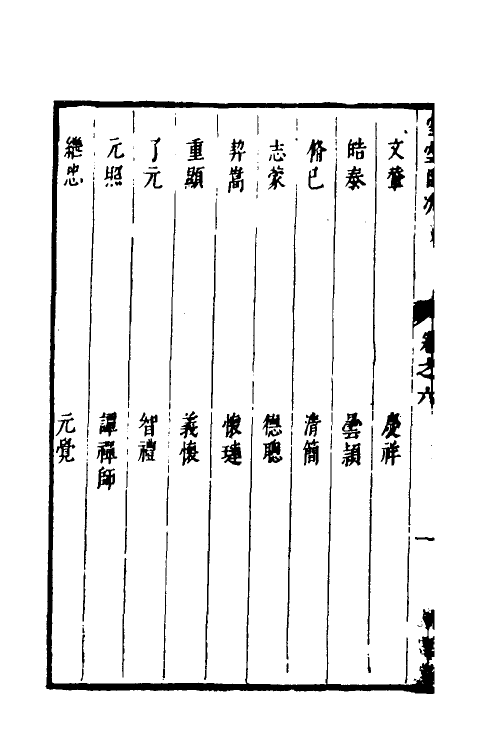 文鑒 慶祥
皓泰 曇頴
脩己 清簡
志蒙 德聰
契嵩 懷璉
重顯 義懷
了元 智禮
元照 譚禪師
繼忠 元覺
卷之六
一